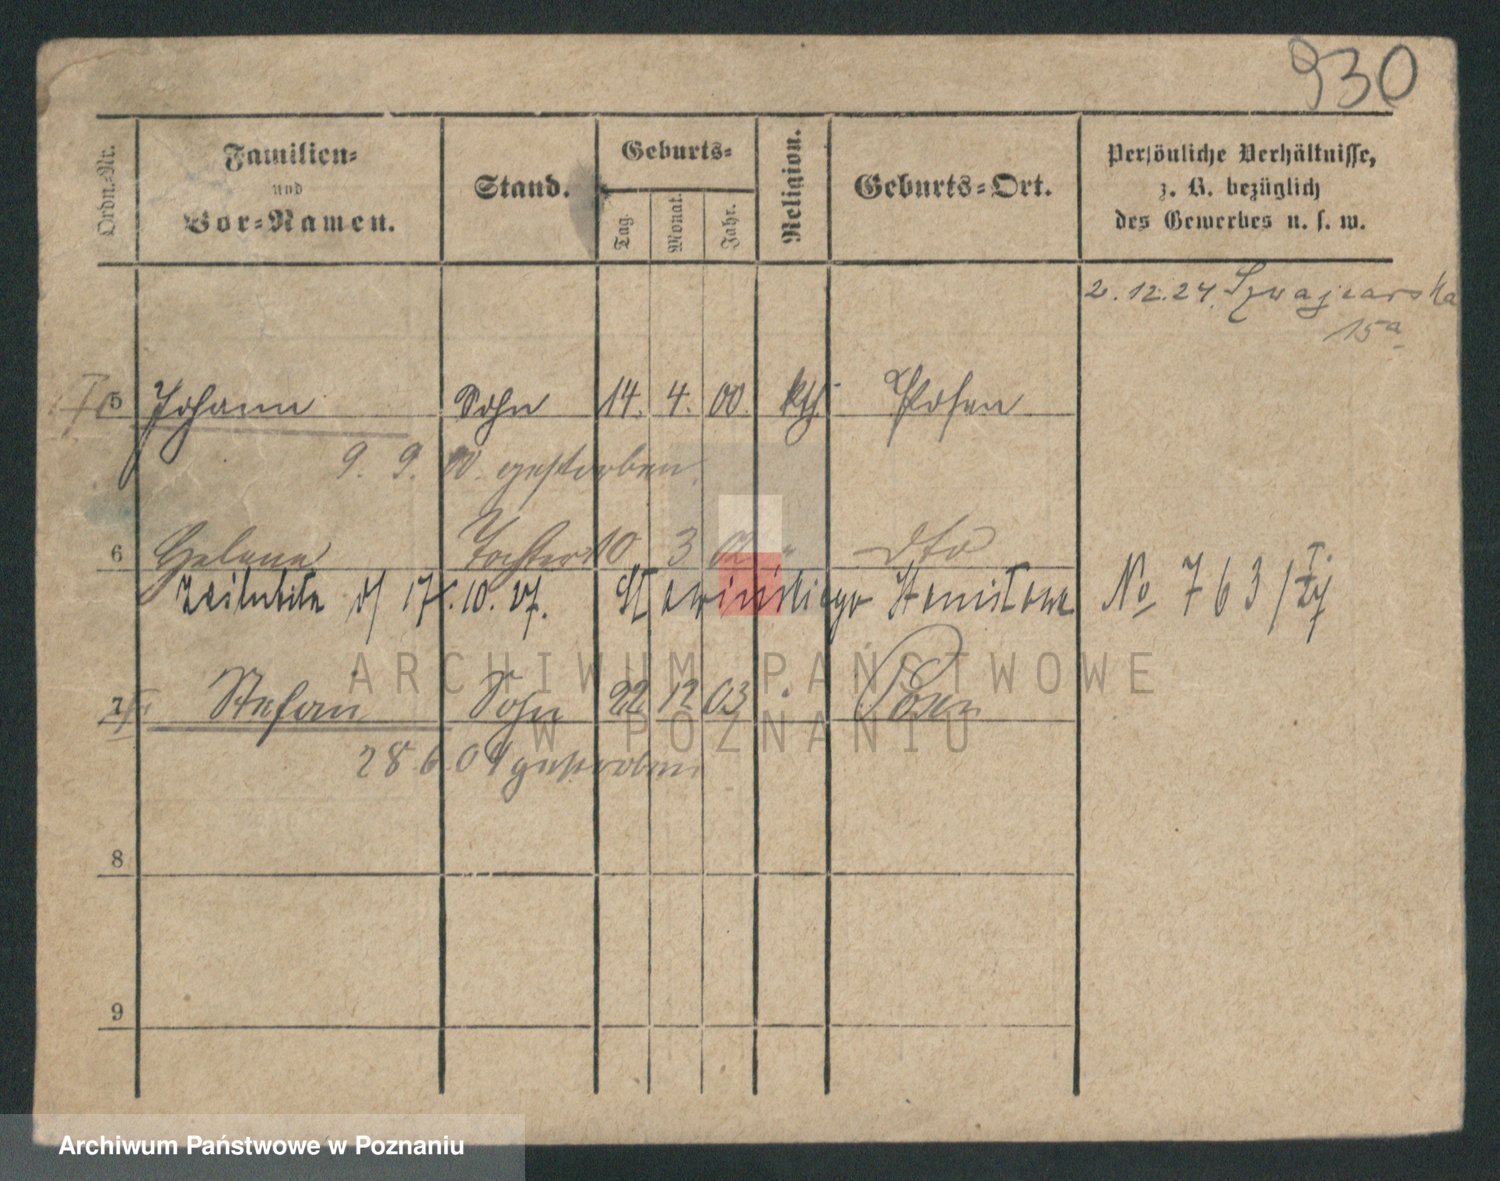 930
Ordn.-Nr.
Familien-
und
Vor-Namen.
Stand.
Geburts-
Tag.
Monat.
Jahr.
Religion.
Geburts-Ort.
Persönliche Verhältnisse,
z. B. bezüglich
des Gewerbes u. s. w.
2. 12. 24. Szwajcarska
15a
5 Johann Sohn 14. 4. 00. kth. Posen
9. 9. 00. gestorben
6 Helene Tochter 10 3 02 " dto
zaślubiła d/ 17. 10. 27. Stawińskiego Stanisława No 763/27
7 Stefan Sohn 22 12 03 " Posen
28 6. 04 gestorben
8
9
ARCHIWUM PAŃSTWOWE
W POZNANIU
Archiwum Państwowe w Poznaniu